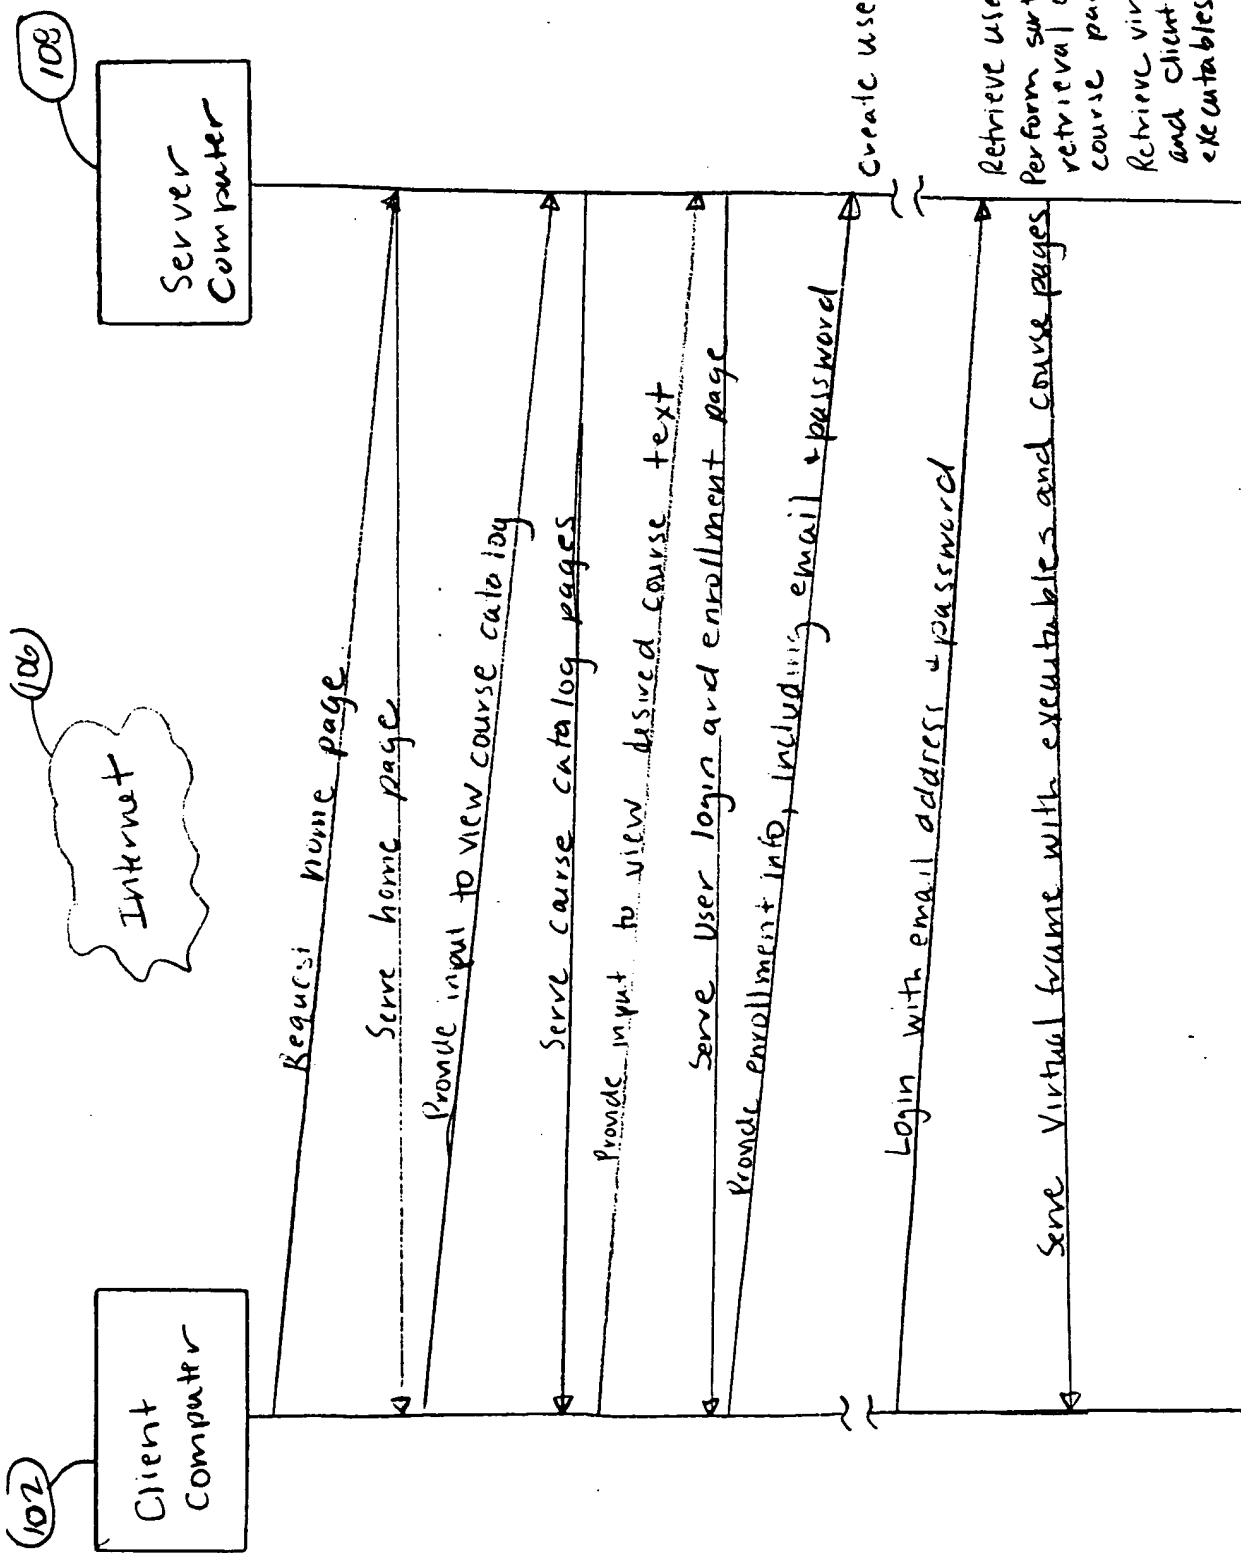 102
Client
Computer
106
Internet
108
Server
Computer
Request home page
Serve home page
Provide input to view course catalog
Serve course catalog pages
Provide input to view desired course text
Serve User login and enrollment page
Provide enrollment info, including email + password
Create use
Login with email address + password
Retrieve use
Perform
retrieval
course
Retrieve
and client
executables
Serve Virtual frame with executables and course pages